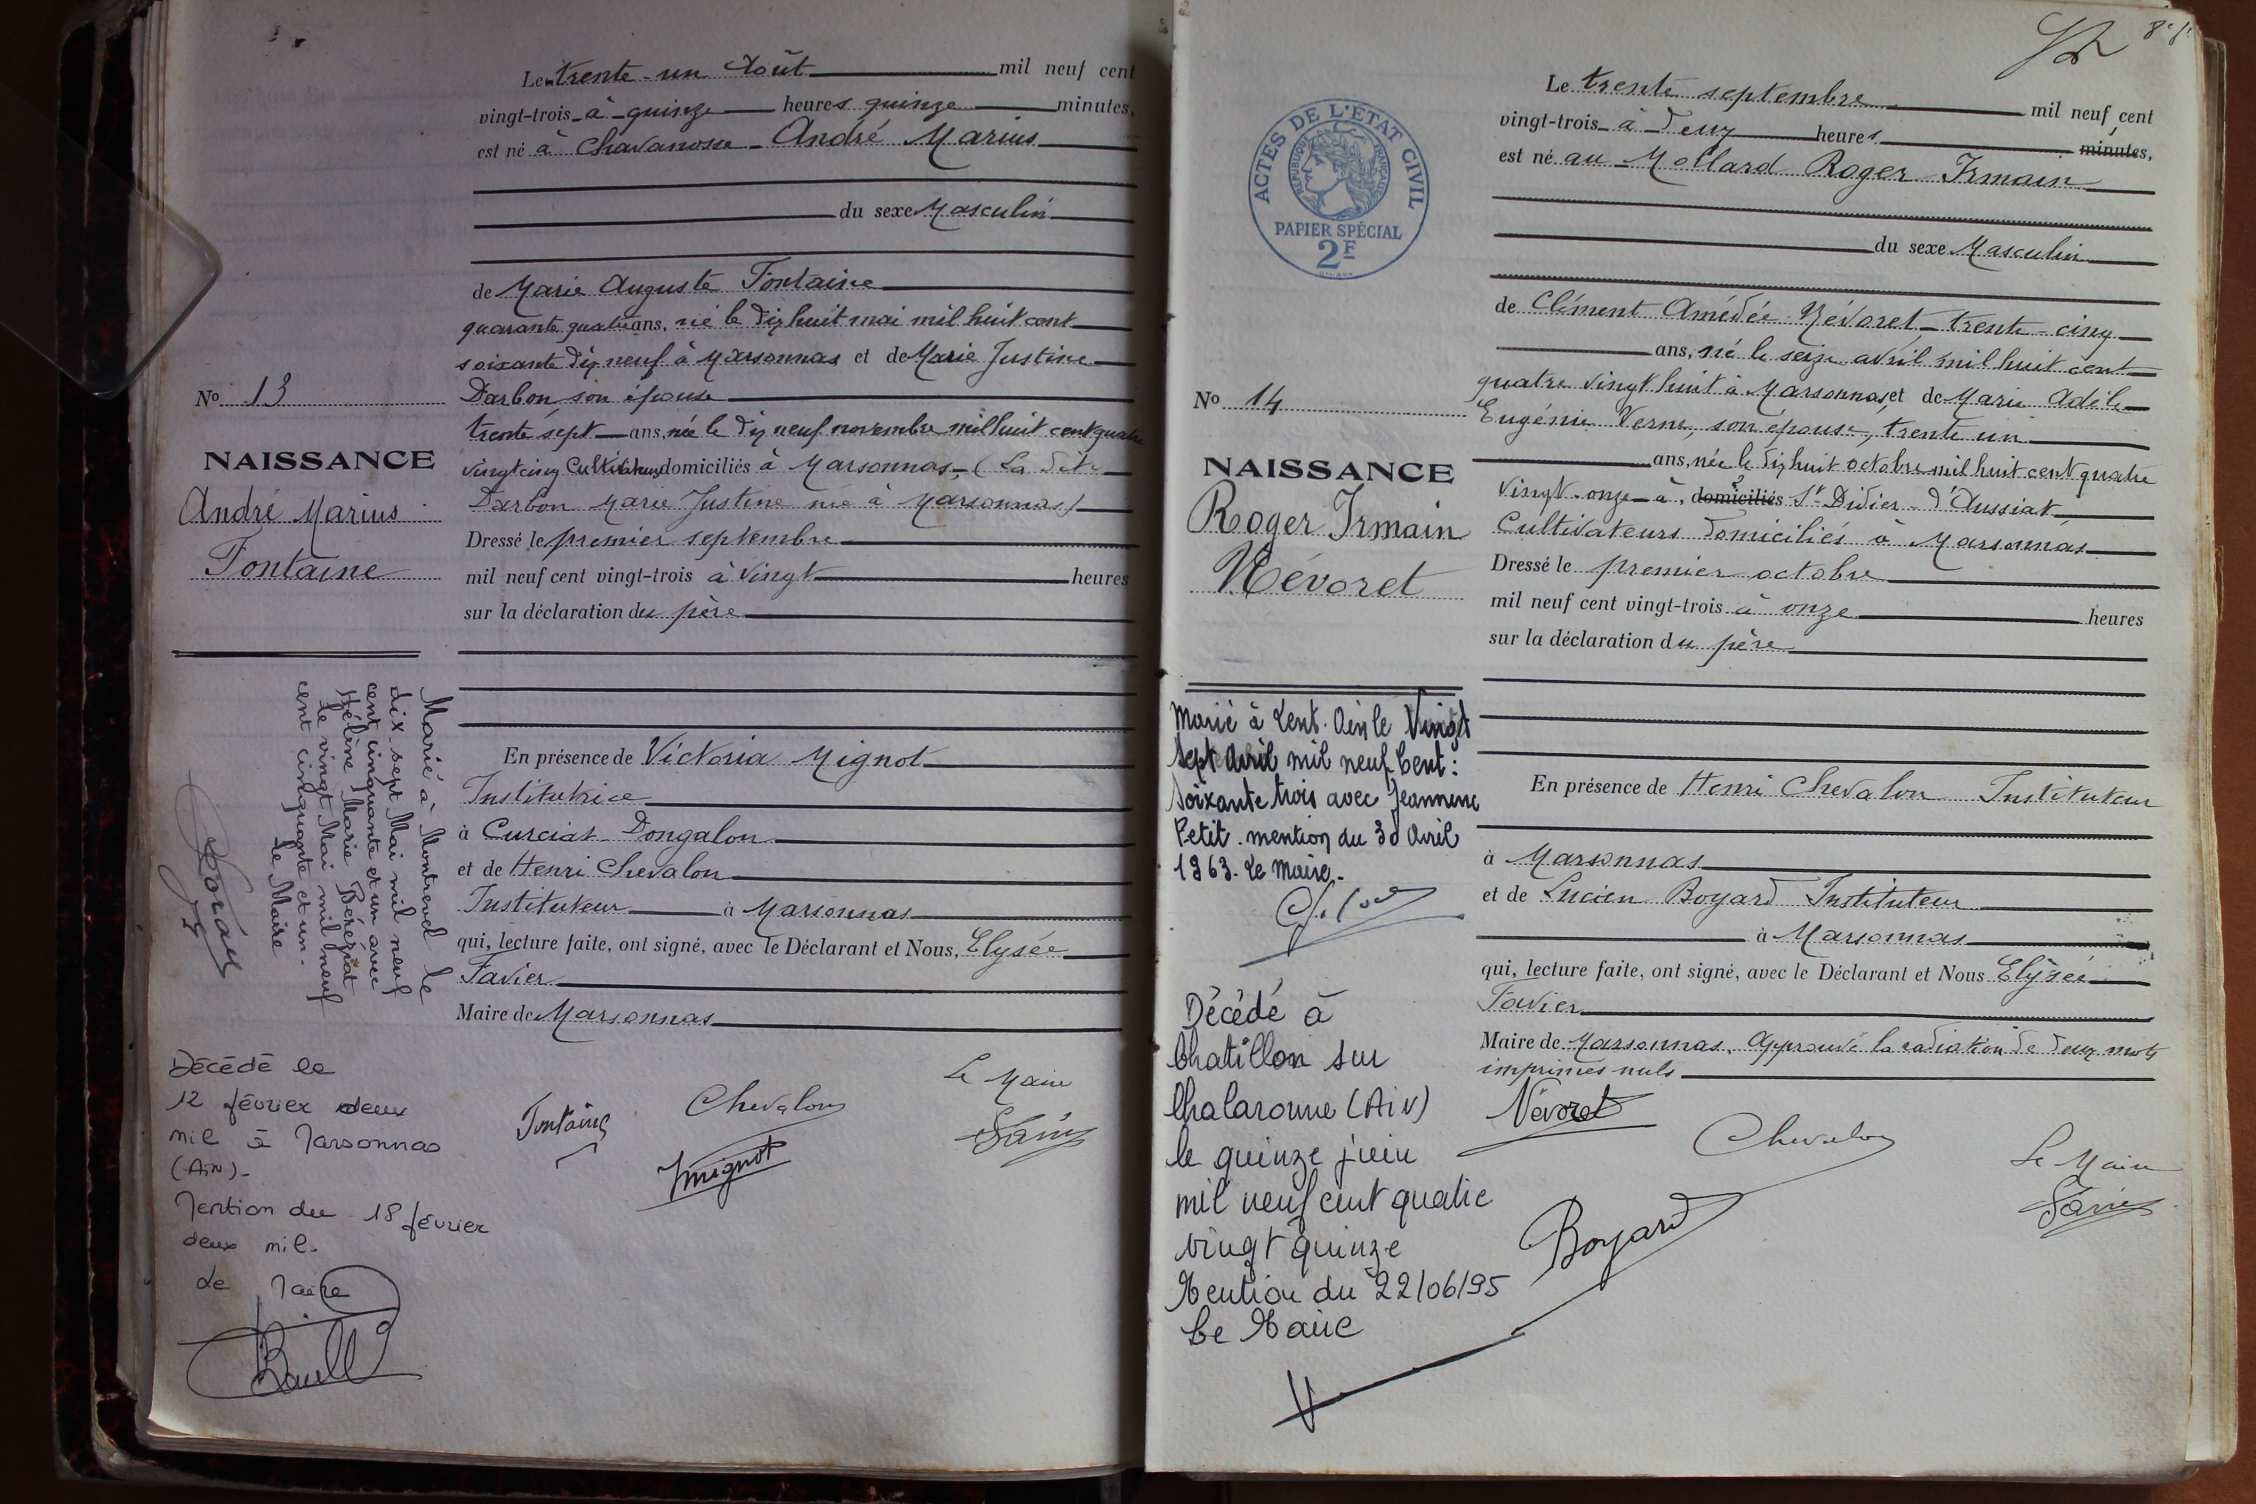 Le trente-un Août mil neuf cent
vingt-trois à quinze heures quinze minutes,
est né à Chavanosse André Marius
du sexe Masculin
de Marie Auguste Fontaine
quarante quatre ans, né le dix huit mai mil huit cent
soixante dix neuf à Marsonnas et de Marie Justine
Darbon son épouse
trente sept ans, née le dix neuf novembre mil huit cent quatre
vingt cinq Cultivateurs domiciliés à Marsonnas, (La dite
Darbon Marie Justine née à Marsonnas)
Dressé le premier septembre
mil neuf cent vingt-trois à vingt heures
sur la déclaration du père
En présence de Victoria Mignot
Institutrice
à Curciat Dongalon
et de Henri Chevalon
Instituteur à Marsonnas
qui, lecture faite, ont signé, avec le Déclarant et Nous, Elysée
Favier
Maire de Marsonnas
Fontaine
Chevalon
Mignot
Le Maire
Favier
No 13
NAISSANCE
André Marius
Fontaine
Marié à Montrevel le
dix-sept Mai mil neuf
cent cinquante et un avec
Hélène Marie
le vingt Mai mil neuf
cent cinquante et un.
Le Maire
Décédé le
12 février deux
mil à Marsonnas
(Ain).
Mention du 18 février
deux mil.
Le Maire
8e f.
ACTES DE L'ETAT CIVIL
REPUBLIQUE FRANÇAISE
PAPIER SPÉCIAL
2F
Le trente septembre mil neuf cent
vingt-trois à deux heures minutes,
est né au Mollard Roger Irmain
du sexe Masculin
de Clément Amédée Névoret trente-cinq
ans, né le seize avril mil huit cent
quatre vingt huit à Marsonnas et de Marie Adèle
Eugénie Verne, son épouse, trente un
ans, née le dix huit octobre mil huit cent quatre
vingt-onze à, domiciliés St Didier-d'Aussiat
Cultivateurs domiciliés à Marsonnas
Dressé le premier octobre
mil neuf cent vingt-trois à onze heures
sur la déclaration du père
En présence de Henri Chevalon Instituteur
à Marsonnas
et de Lucien Boyard Instituteur
à Marsonnas
qui, lecture faite, ont signé, avec le Déclarant et Nous Elysée
Favier
Maire de Marsonnas. Approuvé la radiation de deux mots
imprimés nuls
Névoret
Chevalon
Boyard
Le Maire
Favier
No 14
NAISSANCE
Roger Irmain
Névoret
Marié à Lent. Ain le Vingt
Sept Avril mil neuf Cent:
Soixante trois avec Jeannine
Petit. mention du 30 Avril
1963. Le Maire.
Décédé à
Chatillon sur
Chalaronne (Ain)
le quinze juin
mil neuf cent quatre
vingt quinze
Mention du 22/06/95
Le Maire